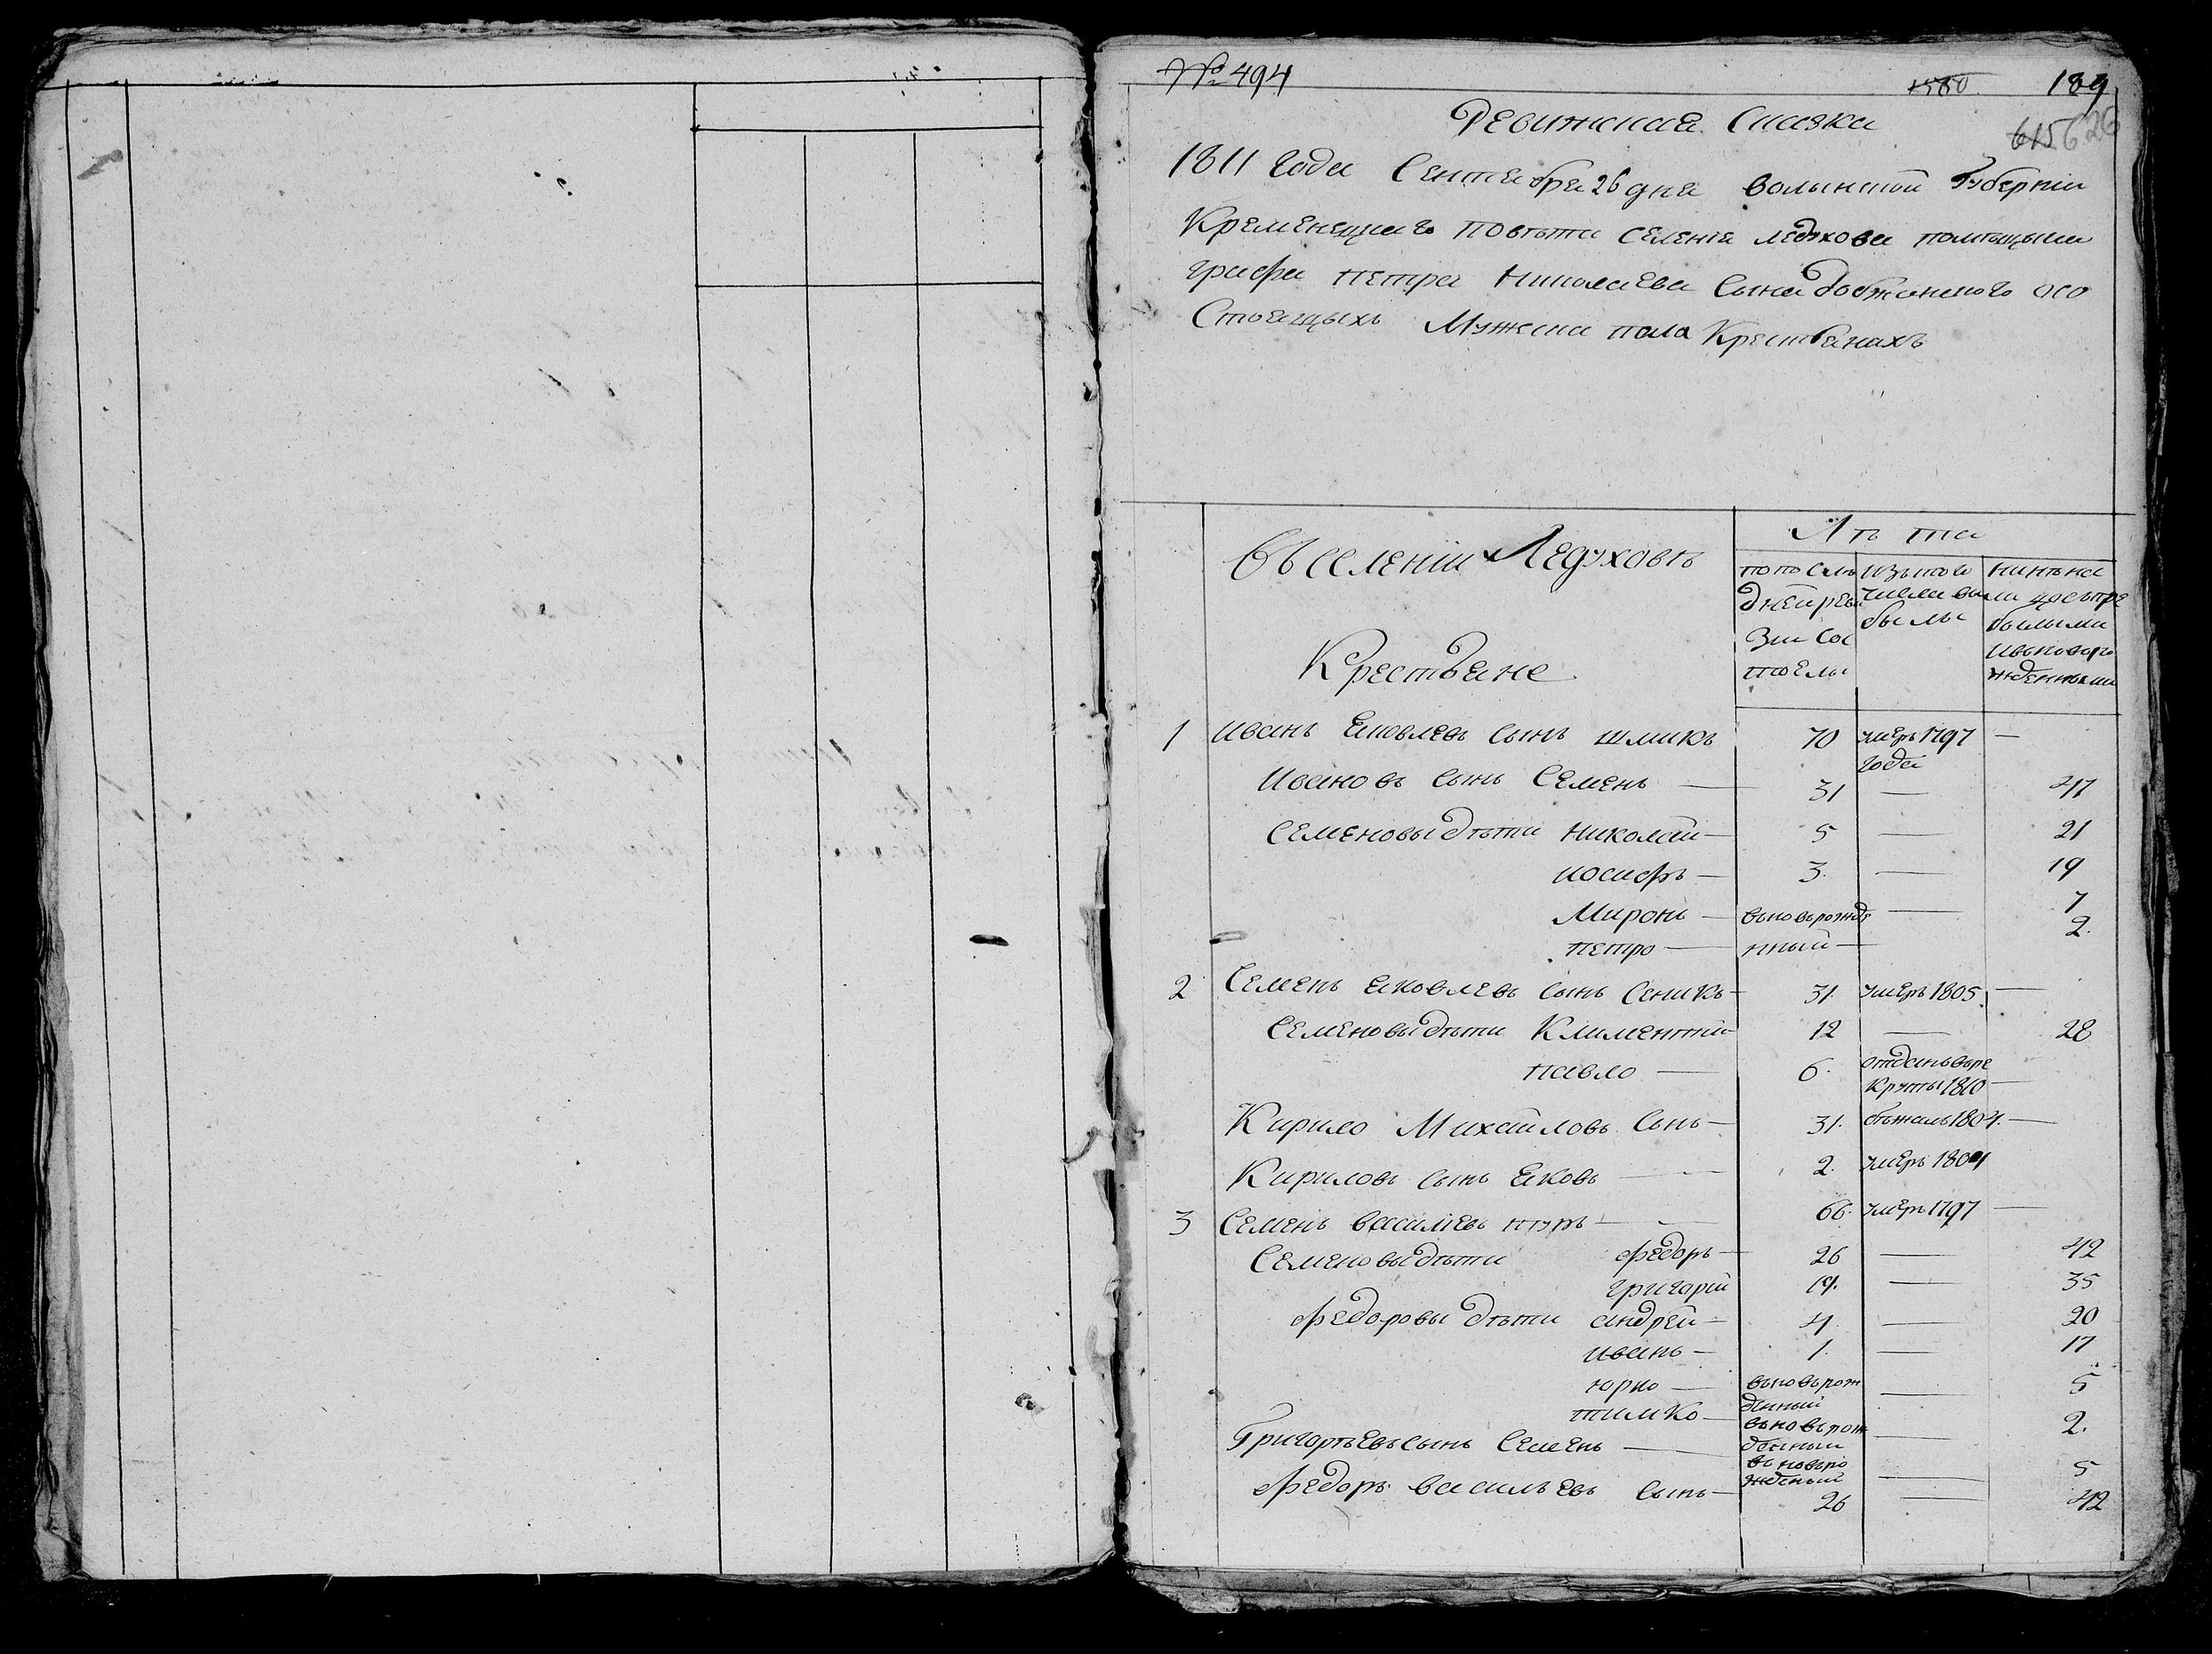 № 494
1580
189
615 626
Ревижская Сказка
1811 года Сентебра 26 дня волынской Губернии
Кременецкаго повѣта селения ледухова помѣщыка
графа петра Николаева сына
Стоящыхъ Мужска пола Крестьянахъ
Въ селении Ледуховѣ
Лѣта
по послѣдней ревизии состоелы
изъ того числа выбылы
нинѣ на лицо съ прибылыми и вьновырожденными
Крестьяне
1 иванъ яковлевъ сынъ шмикъ 70 умеръ 1797 года —
Ивановъ сынъ Семенъ — 31 — 47
Семеновы дѣти николай — 5 — 21
иосифъ — 3. — 19
Миронъ — вьновьрожде — 7
петро — нный — 2.
2 Семенъ яковлевъ сынъ Сеникъ — 31. умеръ 1805. —
Семеновы дѣти Климентий 12 — 28
павло — 6. отданъ въ рекруты 1810 —
Кирило Михайловъ сынъ — 31. бѣжалъ 1804. —
Кириловъ сынъ яковъ — 2. умеръ 1804
3 Семенъ василиевъ — 66. умеръ 1797 —
Семеновы дѣти федоръ — 26 — 42
григорий 19. — 35
федоровы дѣти андрей — 4 — 20
иванъ — 1. — 17
юрко — вьновьрожденный — 5
тимко — вьновьрожденный — 2.
Григорьевъ сынъ Семенъ — вьновьрожденый — 5
федоръ васильевъ сынъ — 26 — 42